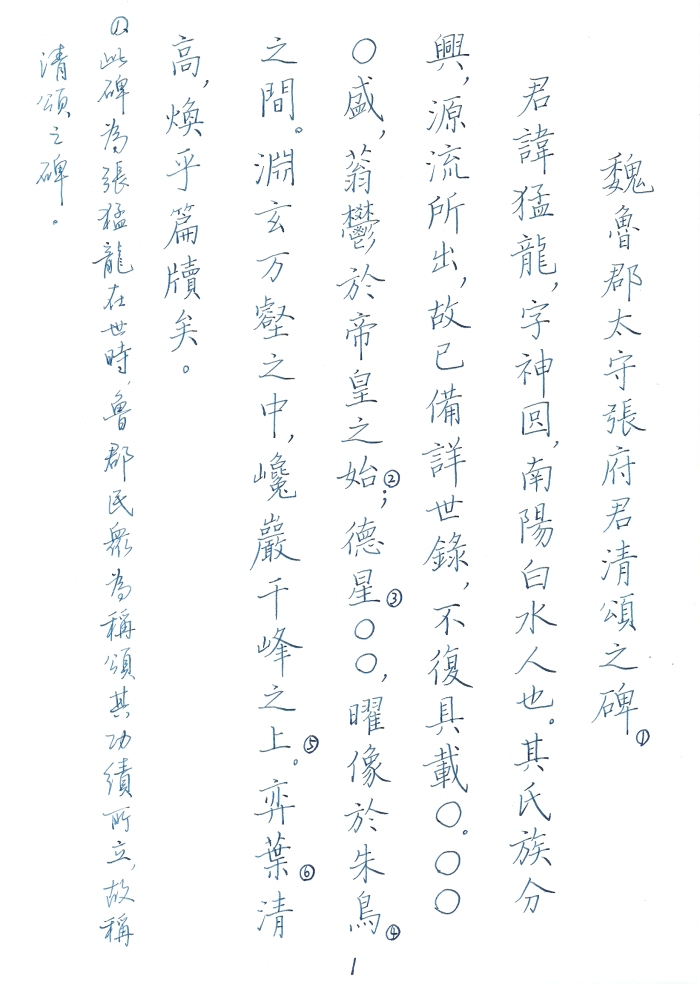 魏魯郡太守張府君清頌之碑①
君諱猛龍,字神囩,南陽白水人也。其氏族分
興,源流所出,故已備詳世錄,不復具載〇。〇〇
〇盛,蓊鬱於帝皇之始②;德星③〇〇,曜像於朱鳥④
之間。淵玄万壑之中,巉巖千峰之上⑤。弈葉⑥清
高,煥乎篇牘矣。
①此碑為張猛龍在世時,魯郡民眾為稱頌其功績所立,故稱
清頌之碑。
1